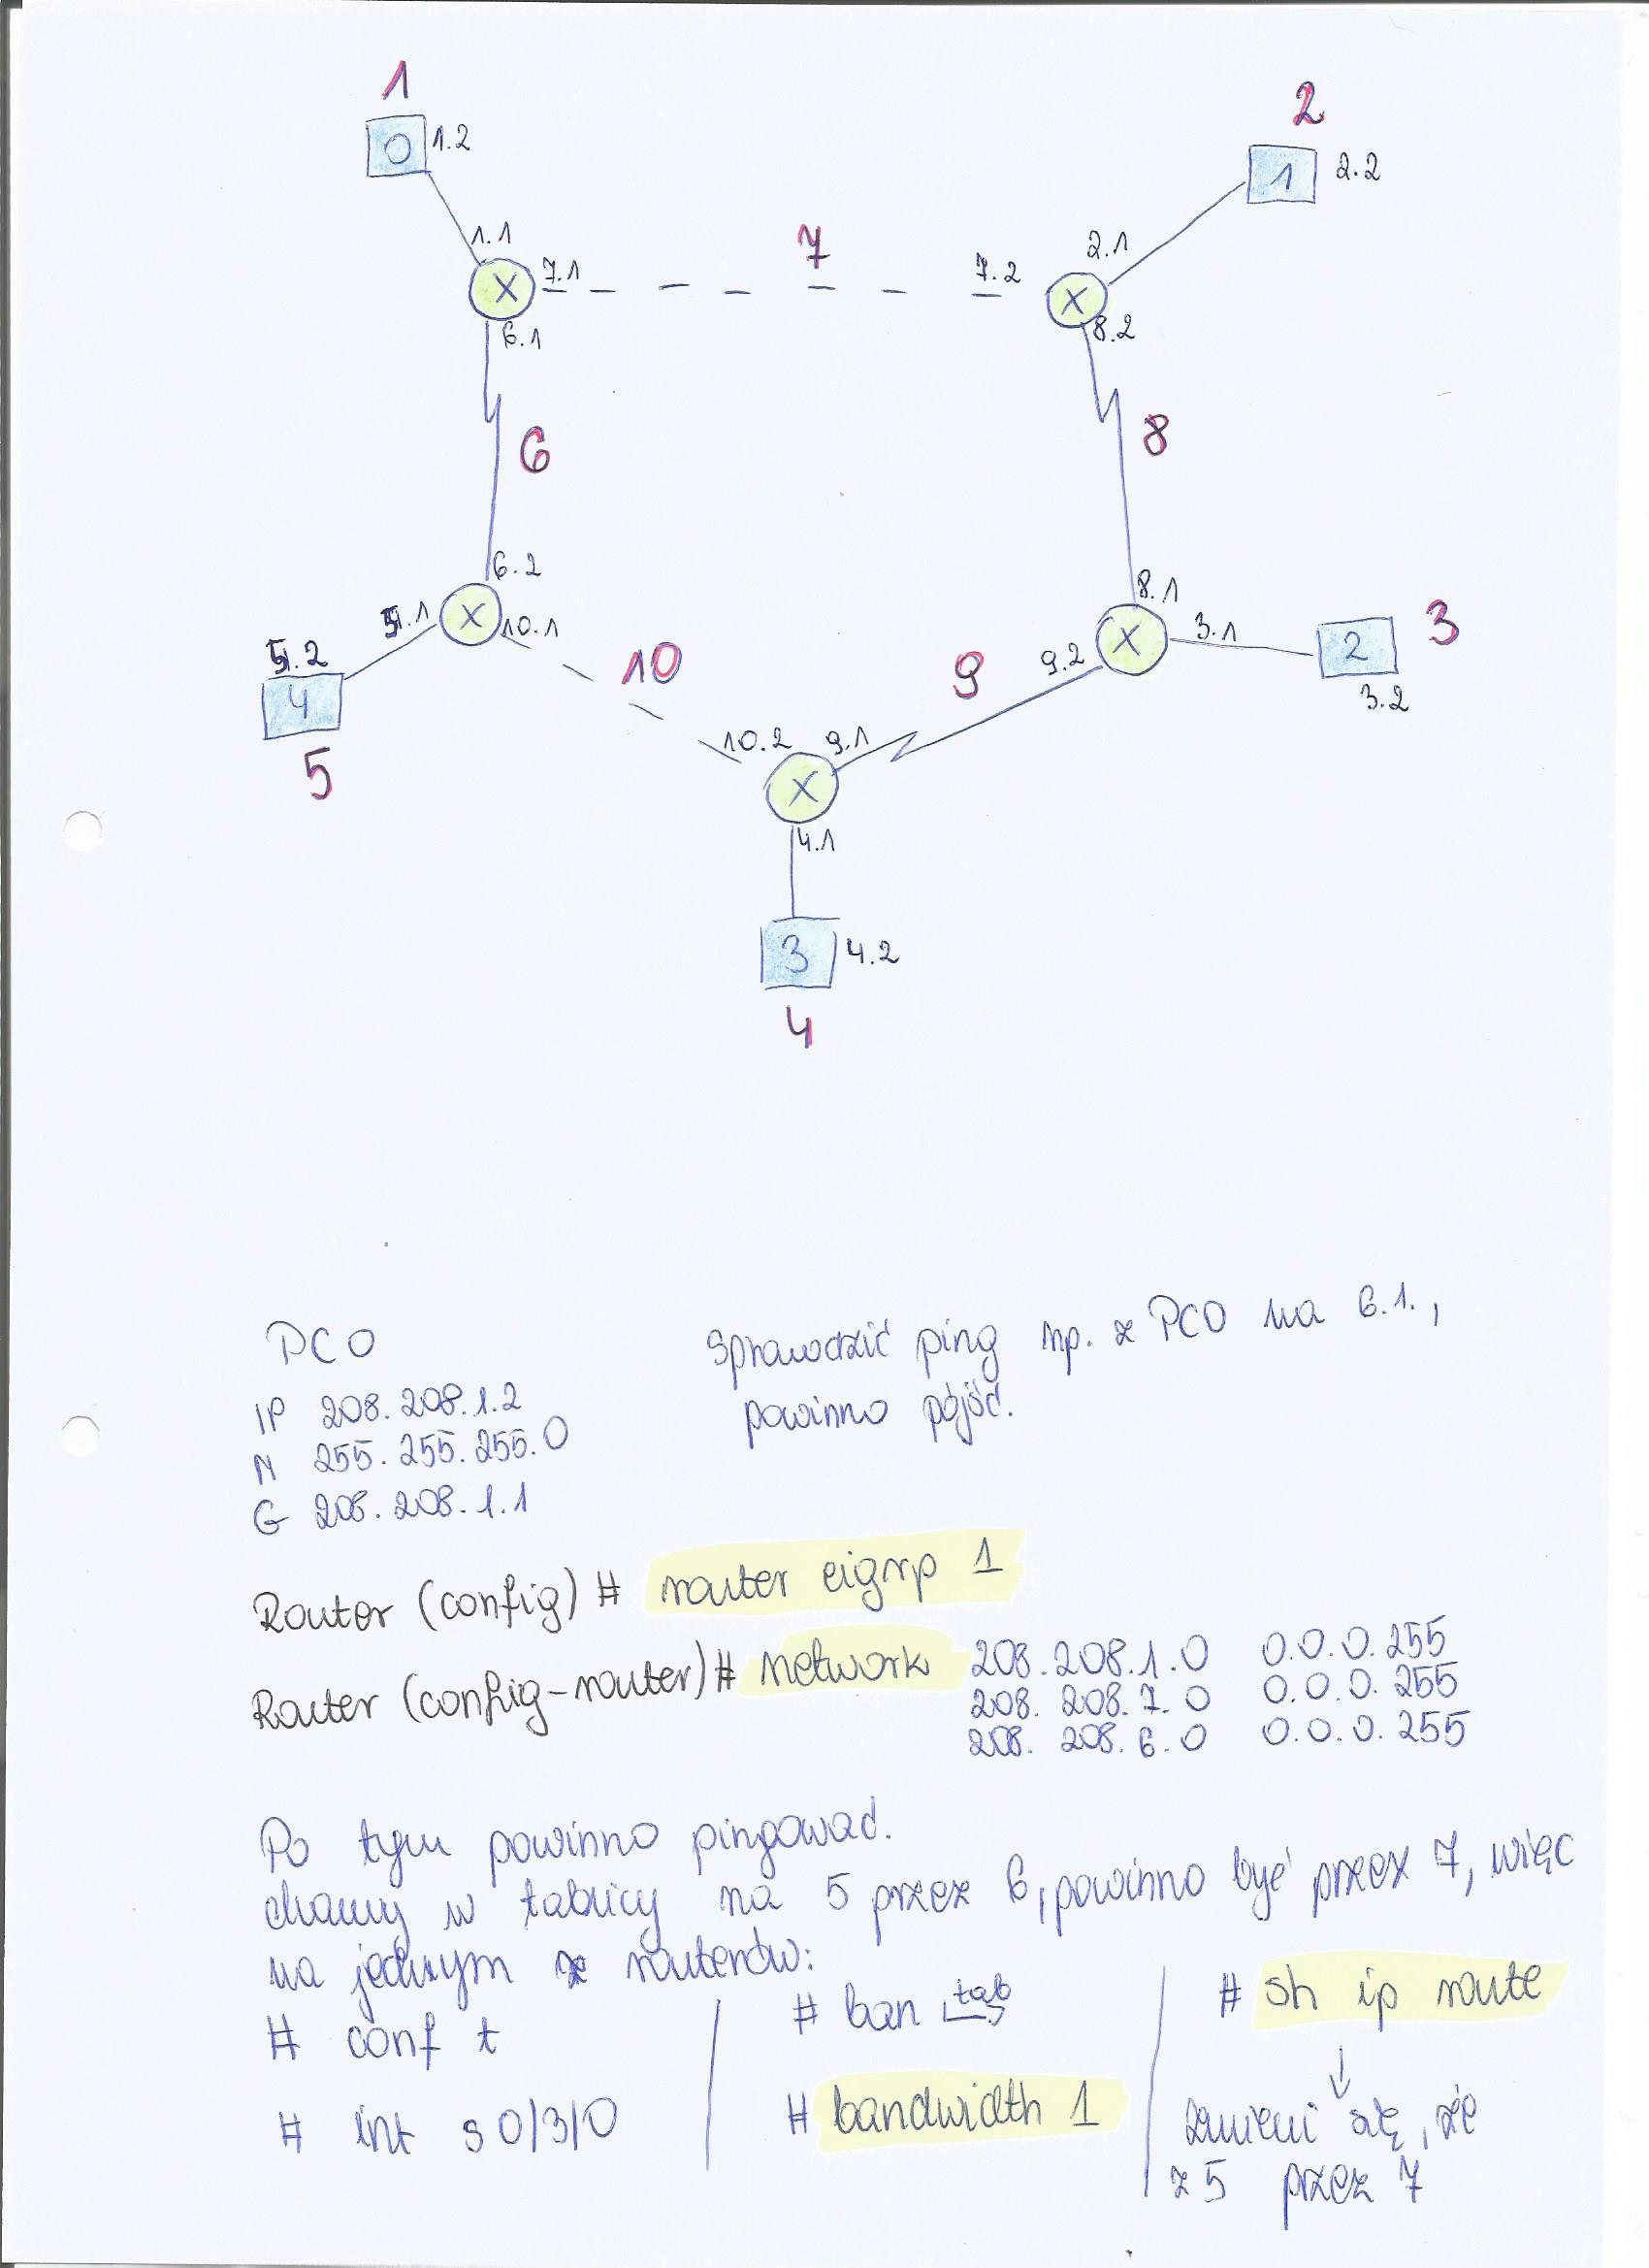 1
2
0 1.2
1 2.2
1.1
2.1
X 7.1 7 7.2 X
6.1
8.2
6
8
6.2
8.1
5.1 X 10.1
10
9
9.2 X 3.1 2 3
3.2
5.2
4
5
10.2 9.1
X
4.1
3 4.2
4
PC0
IP 208.208.1.2
N 255.255.255.0
G 208.208.1.1
Sprawdzić ping np. z PC0 na 6.1.,
powinno pójść.
Router (config) # router eigrp 1
Router (config-router)# network 208.208.1.0 0.0.0.255
208.208.7.0 0.0.0.255
208.208.6.0 0.0.0.255
Po tym powinno pingować.
chcemy w tablicy na 5 przez 6, powinno być przez 7, więc
na jednym z routerów:
# conf t
# int s 0/3/0
# ban tab
# bandwidth 1
# sh ip route
zmieni się, że
z 5 przez 7